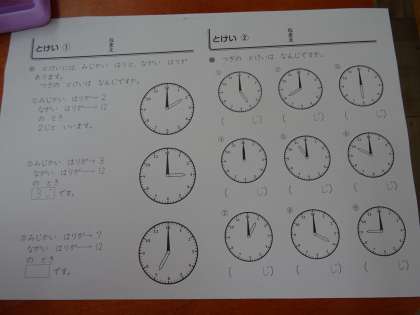 とけい ①
なまえ
● とけいには、みじかい はりと、ながい はりが
あります。
つぎの とけいは なんじですか。
①みじかい はりが→ 2
ながい はりが→ 12
の とき
2じと いいます。
②みじかい はりが→ 3
ながい はりが→ 12
の とき
です。
③みじかい はりが→ 7
ながい はりが→ 12
の とき
です。
とけい ②
なまえ
● つぎの とけいは なんじですか。
① ② ③
( じ) ( じ) ( じ)
④ ⑤ ⑥
( じ) ( じ) ( じ)
⑦ ⑧ ⑨
( じ) ( じ) ( じ)